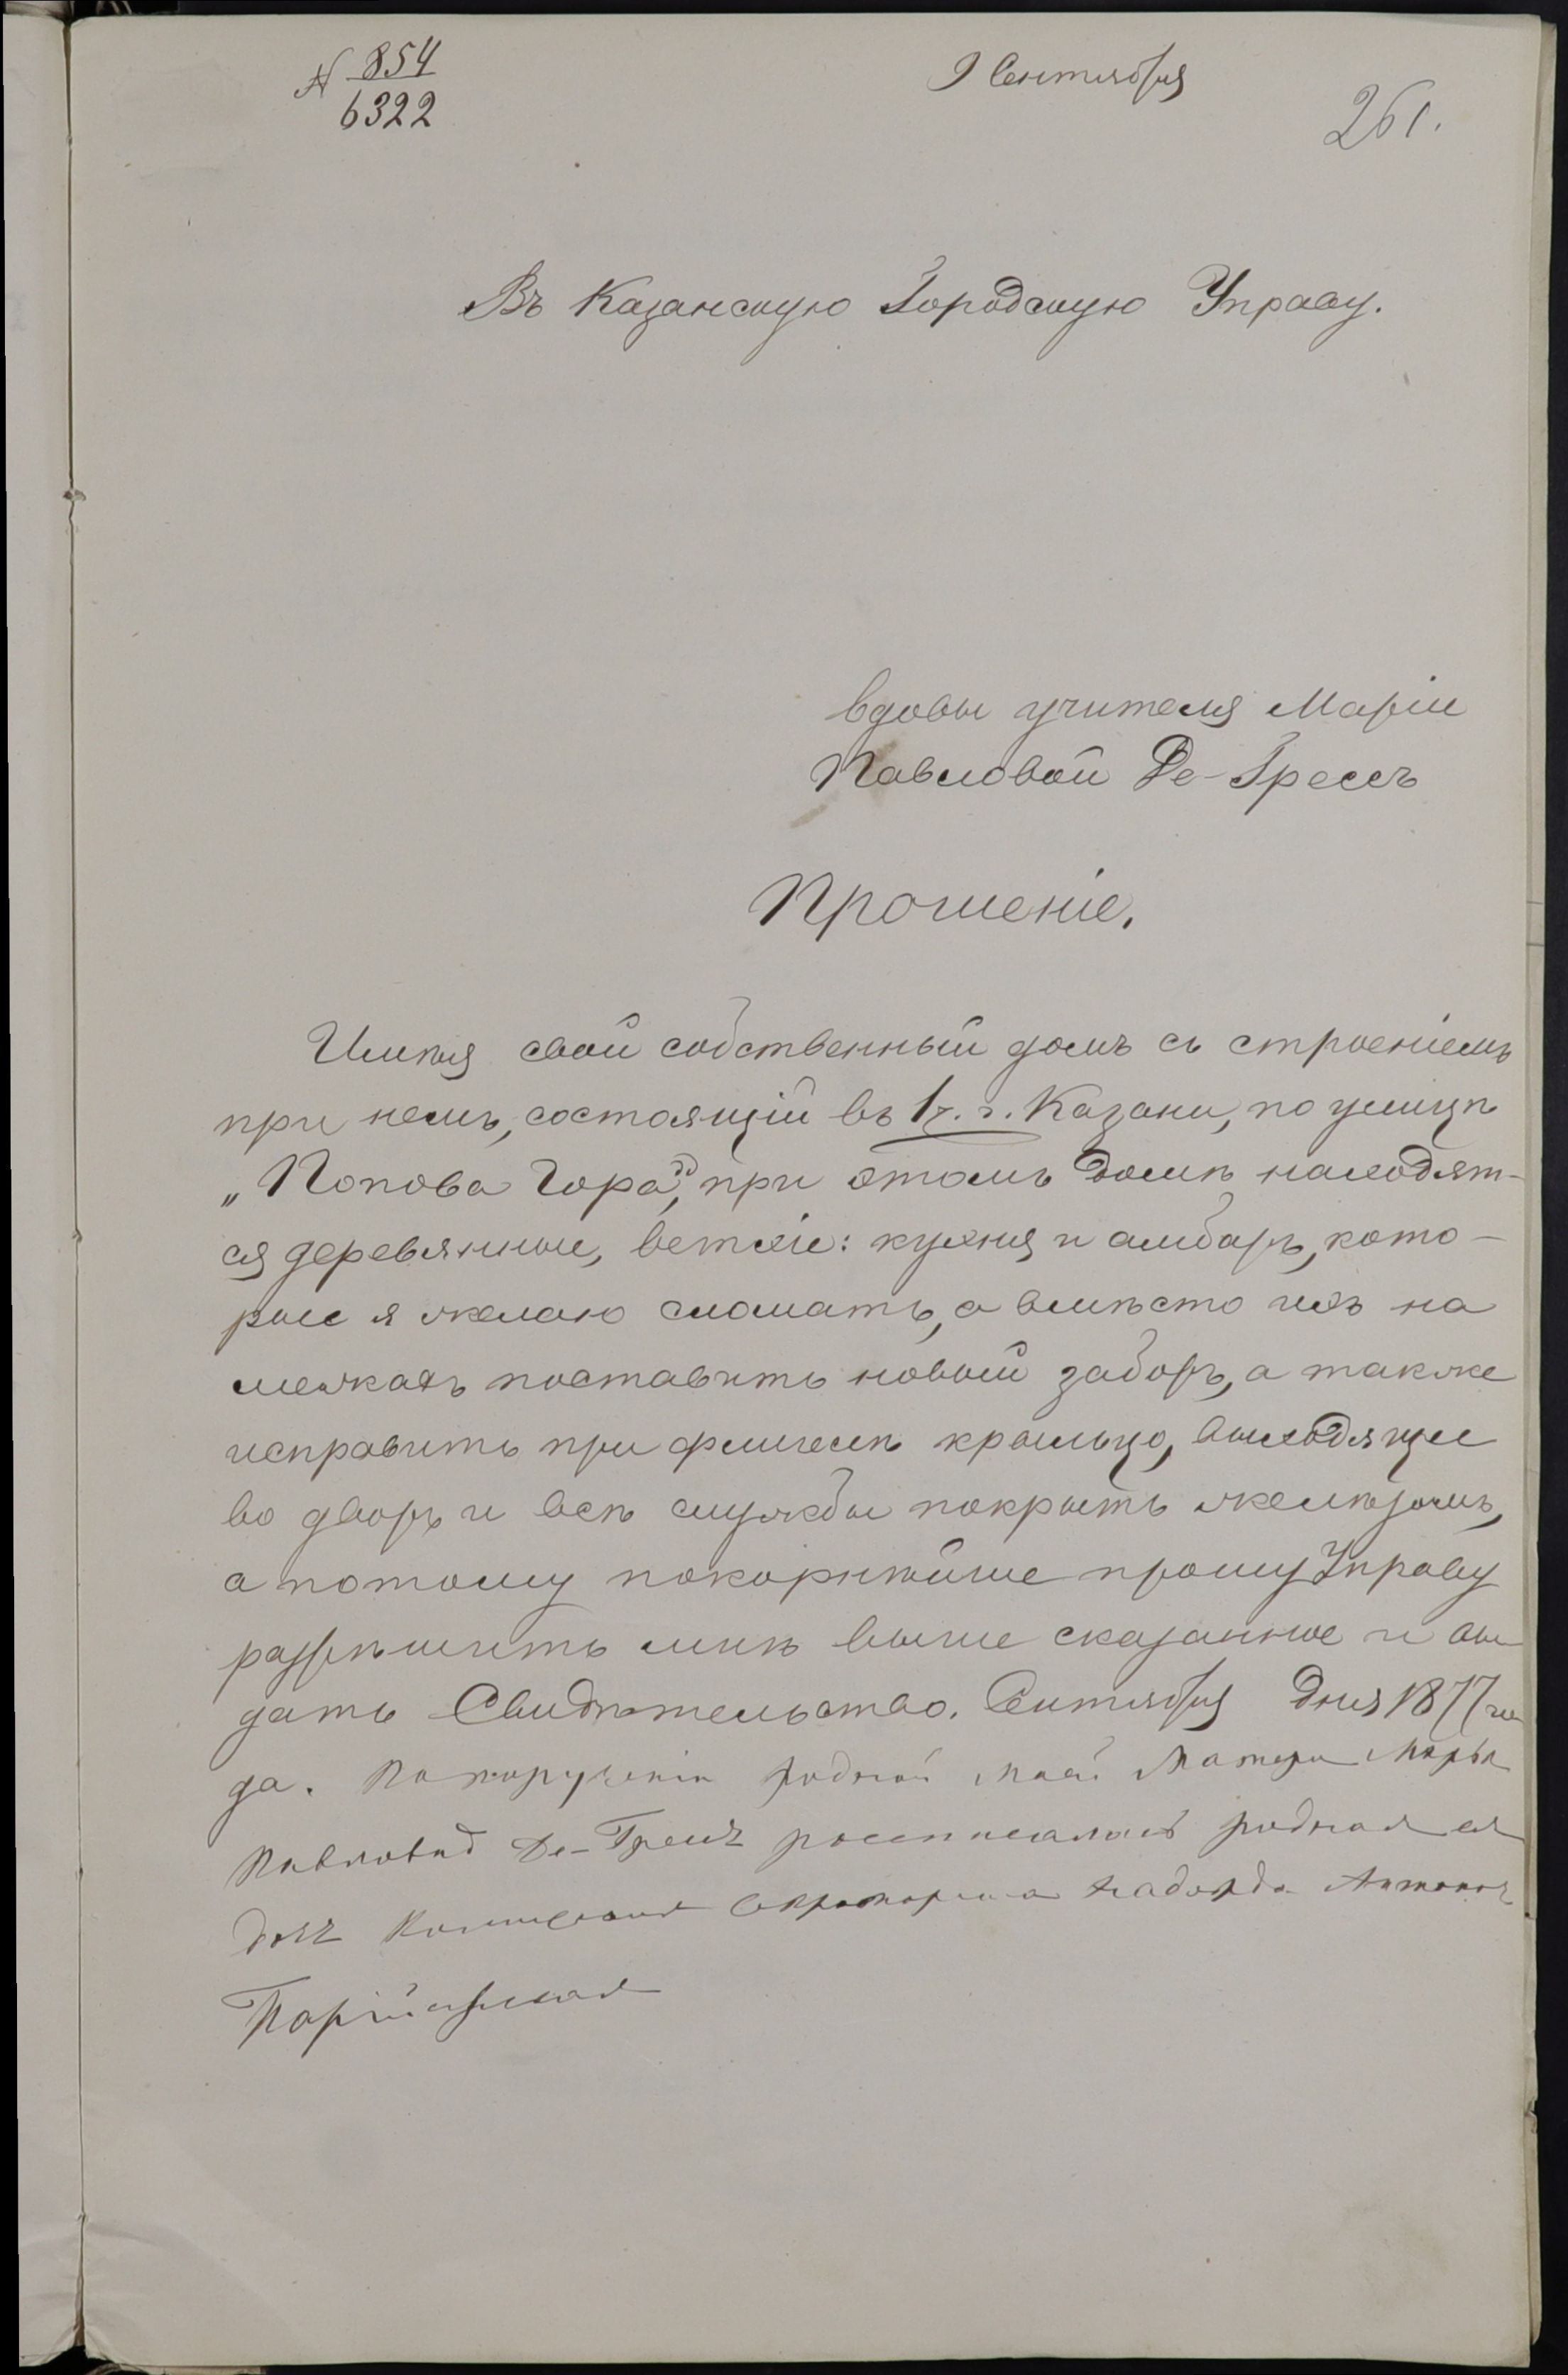 № 854
6322
9 Сентября
261.
Въ Казанскую Городскую Управу.
вдовы учителя Маріи
Павловой Де-Грессъ
Прошеніе.
Имѣя свой собственный домъ съ строеніемъ
при немъ, состоящій въ 1 ч. г. Казани, по улицѣ
„Попова Гора", при этомъ домѣ находят-
ся деревянные, ветхіе: кухня и амбаръ, кото-
рые я желаю сломать, а вмѣсто ихъ на
межахъ поставить новый заборъ, а также
исправить при флигелѣ крыльцо, выходящее
во дворъ и всѣ службы покрыть желѣзомъ,
а потому покорнѣйше прошу Управу
разрѣшить мнѣ выше сказанное и вы-
дать Свидѣтельство. Сентября дня 1877 го
да. По порученію родной моей матери Марьи
Павловной Де-Гресъ росписалась родная ея
дочъ Колежская Секретарша Надежда Антонов